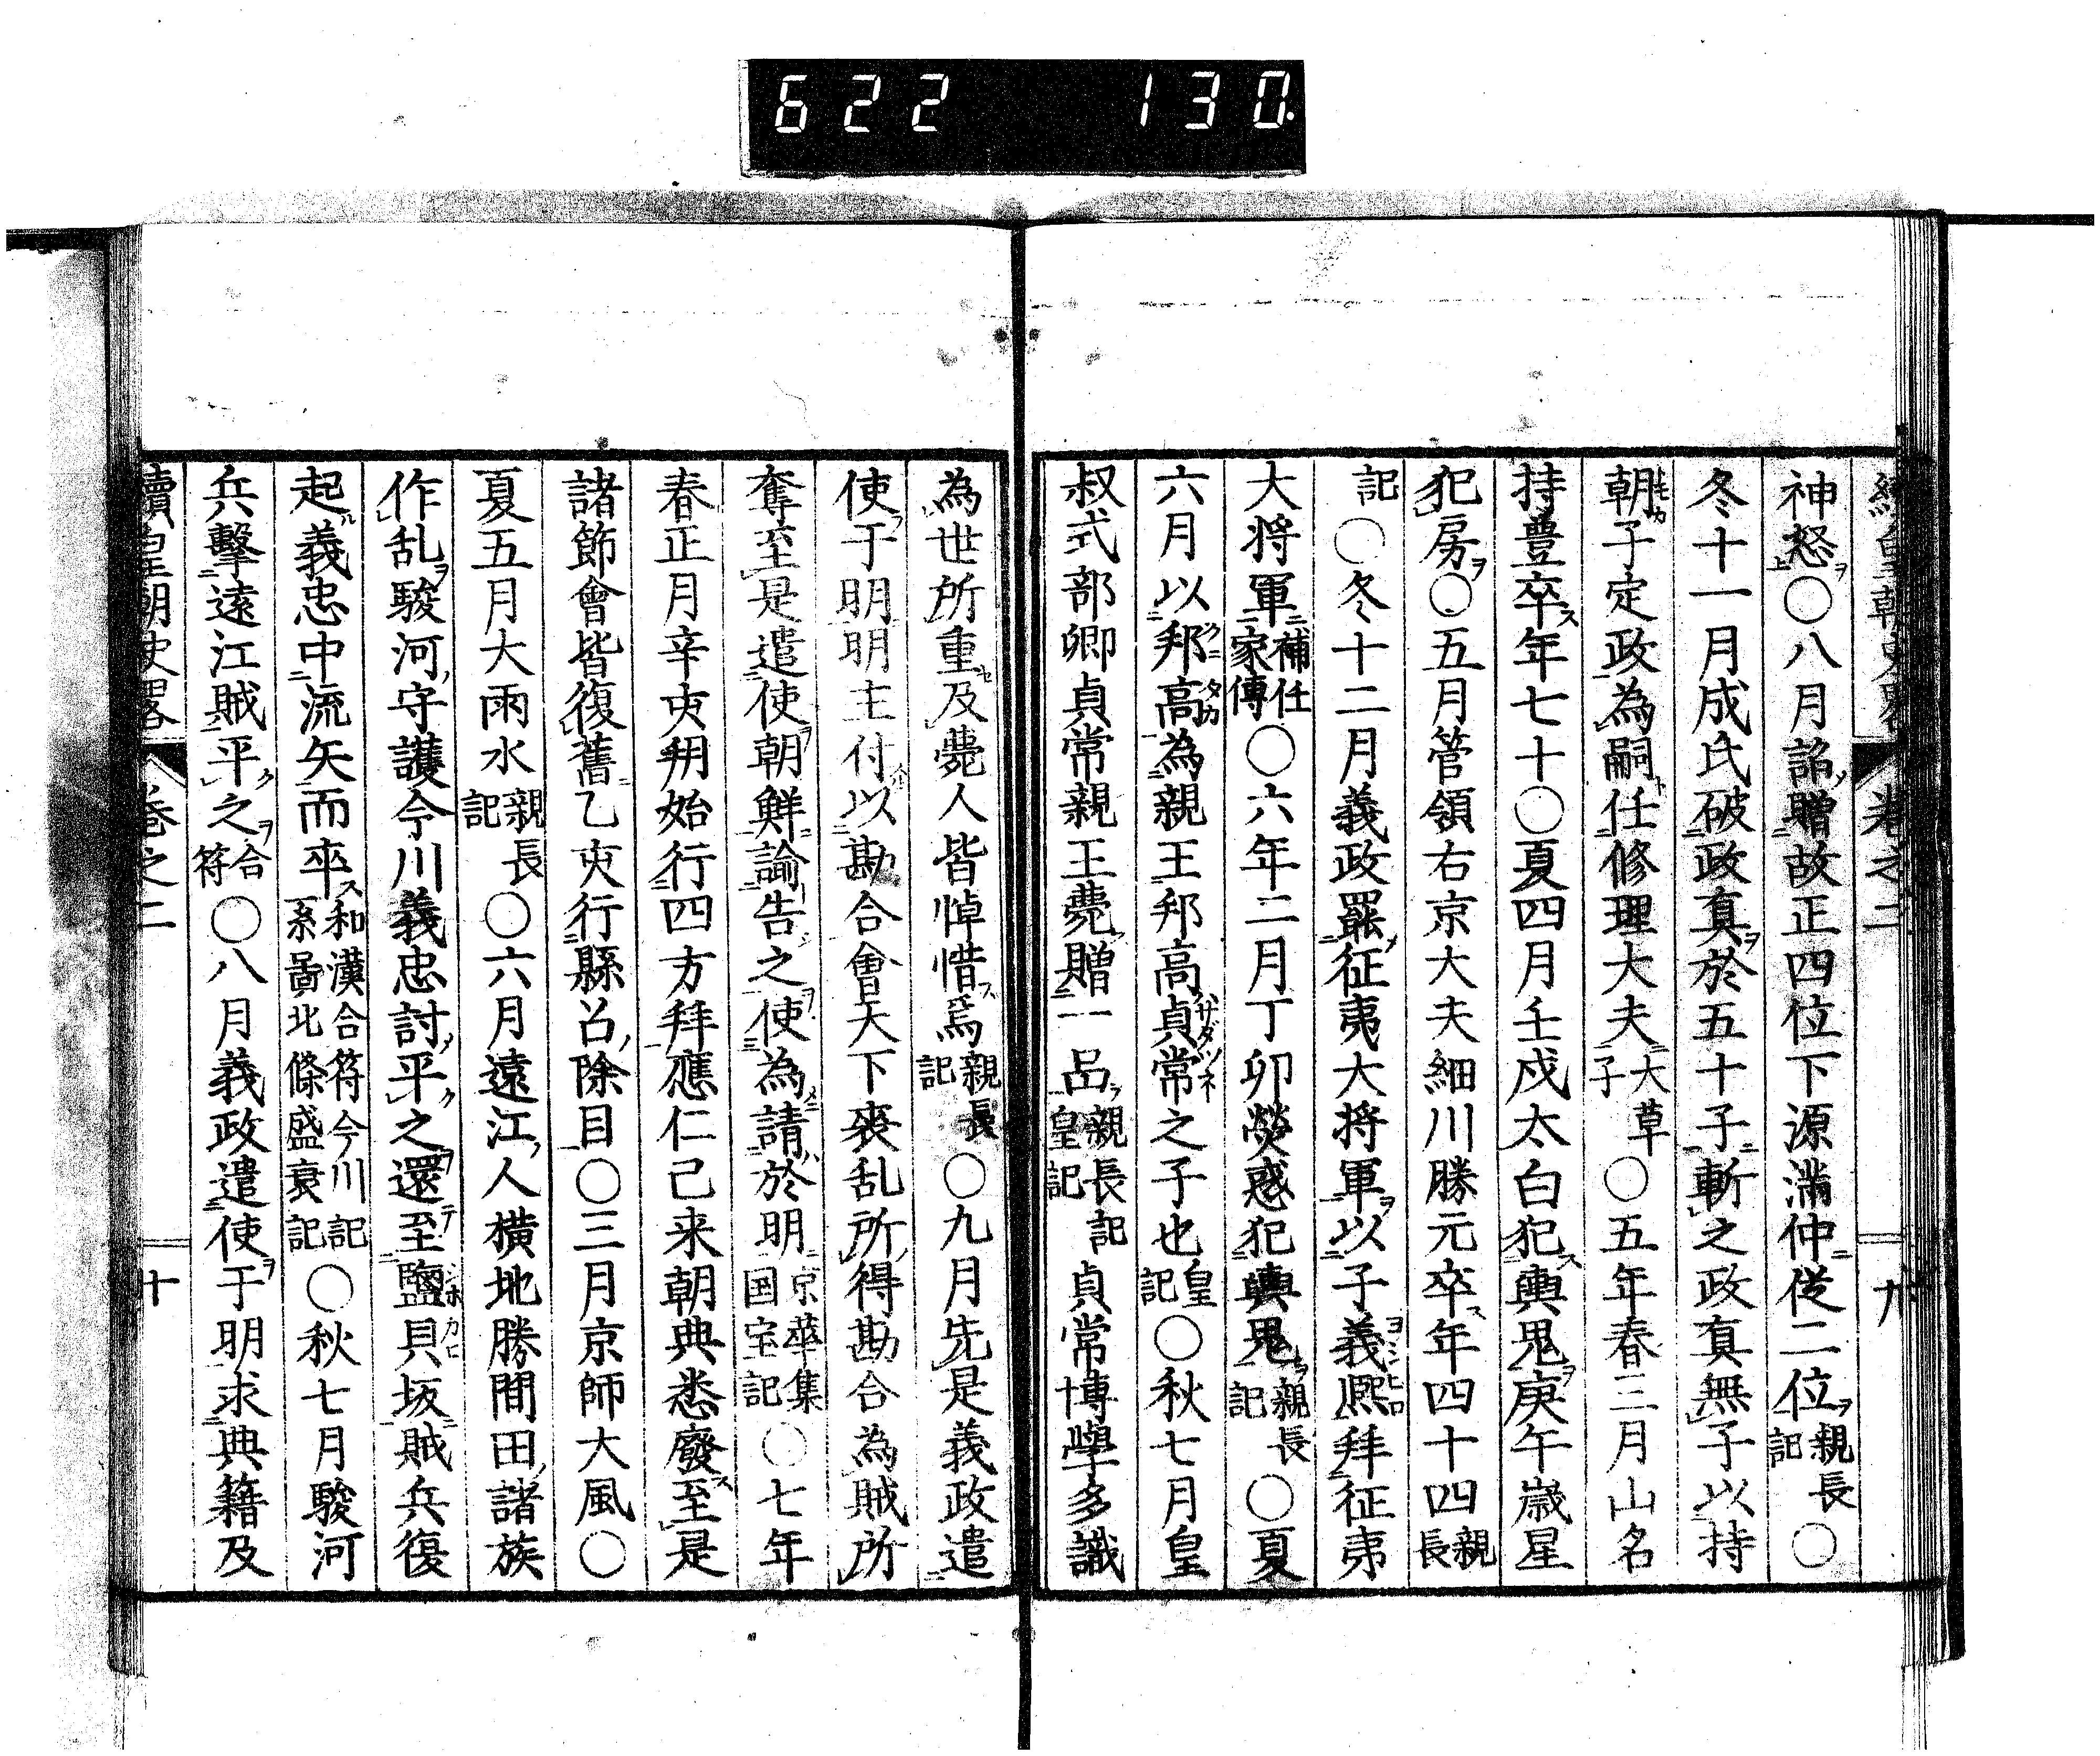 622 130
續皇朝史畧 卷之二 九
神怒○八月詔贈故正四位下源滿仲從二位親長記○
冬十一月成氏破政真於五十子斬之政真無子以持
朝子定政為嗣任修理大夫大草子○五年春三月山名
持豊卒年七十○夏四月壬戌太白犯輿鬼庚午歲星
犯房○五月管領右京大夫細川勝元卒年四十四親長
記○冬十二月義政罷征夷大将軍以子義熈拜征夷
大将軍補任家傳○六年二月丁卯熒惑犯輿鬼親長記○夏
六月以邦高為親王邦高貞常之子也皇記○秋七月皇
叔式部卿貞常親王薨贈一品親長記皇記貞常博學多識
為世所重及薨人皆悼惜焉親長記○九月先是義政遣
使于明明主付以勘合會天下丧乱所得勘合為賊所
奪至是遣使朝鮮諭告之使為請於明京華集国宝記○七年
春正月辛亥朔始行四方拜應仁已来朝典悉廢至是
諸節會皆復舊乙亥行縣召除目○三月京師大風○
夏五月大雨水親長記○六月遠江人横地勝間田諸族
作乱駿河守護今川義忠討平之還至鹽貝坂賊兵復
起義忠中流矢而卒和漢合符今川記系啚北條盛衰記○秋七月駿河
兵擊遠江賊平之合符○八月義政遣使于明求典籍及
續皇朝史畧 卷之二 十